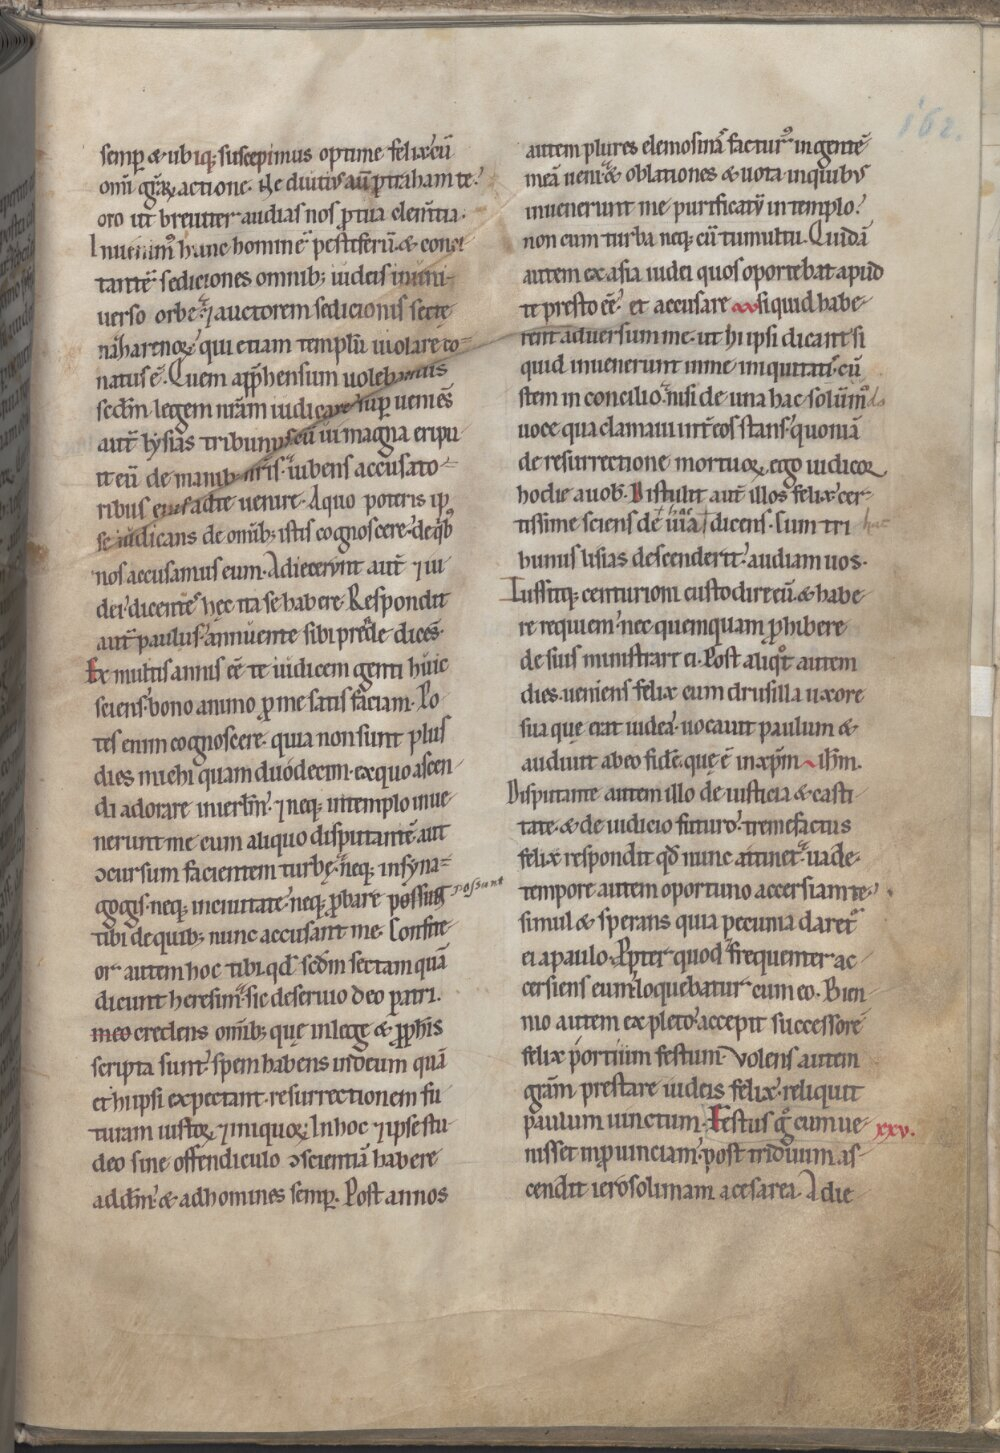 162.
semp̱ & ubiq; suscepimus optime felix cū
om̄i gr̄aꝝ actione. Ne diutiꝰ aut̄ ꝓtraham te.
oro ut breuiter audias nos ꝓ tua clem̄tia.
Inuenimꝰ hunc hominē pestiferū. & conci
tantē sediciones omnib; iudeis in uni-
uerso orbe. ⁊ auctorem sedicionis sectę
nāzarenoꝝ. qui etiam templū uiolare co-
natus ē. Quem app̄hensum uolebamus
sedm̄ legem nr̄am iudicare. sup̱ueniēs
aut̄ lysias tribunus. cū ui magna eripu
it eū de manib; nr̄is. iubens accusato-
ribus eius ad te uenire. A quo poteris ip̄
se iudicans de om̄ib; istis cognoscere. de qͥbꝰ
nos accusamus eum. Adiecerunt aut̄ ⁊ iu
dei dicentes hęc ita se habere. Respondit
aut̄ paulus. annuente sibi preside dicēs.
Ex multis annis eē te iudicem genti huic
sciens. bono animo ꝓ me satis faciam. Po-
tes enim cognoscere. quia non sunt plus
dies michi quam duodecim. ex quo ascen-
di adorare in ierl̄m. ⁊ neq; in templo inue-
nerunt me cum aliquo disputantē. aut
ɔcursum facientem turbę. neq; in syna-
gogis. neq; in ciuitate. neq; ꝓbare possūt possunt
tibi de quib; nunc accusant me. Confite-
or autem hoc tibi. qd̄ sedm̄ sectam quā
dicunt heresim. sic deseruio deo patri.
meo credens om̄ib; que in lege & ꝓph̄is
scripta sunt. spem habens in deum quā
et hi ipsi expectant. resurrectionem fu-
turam iustoꝝ ⁊ iniquoꝝ. In hoc ⁊ ipse stu-
deo sine offendiculo ɔscientiā habere
ad dm̄ & ad homines semp̱. Post annos
autem plures elemosinā facturꝰ in gentē
meā ueni. & oblationes & uota. in quibus
inuenerunt me purificatū in templo.
non cum turba neq; cū tumultu. Quidā
autem ex asia iudei quos oportebat apud
te presto eē. et accusare siquid habe-
rent aduersum me. ut hi ipsi dicant si
quid inuenerunt in me iniquitatis. cū
stem in concilio. nisi de una hac solūmꝰdo
uoce qua clamaui int̄ eos stans. quoniā
de resurrectione mortuoꝝ ego iudicoꝛ
hodie a uob̄. Distulit aut̄ illos felix. cer-
tissime sciens de hac uia dicens. Cum tri hac
bunus lisias descenderit. audiam uos.
Iussitq; centurioni custodire eū. & habe-
re requiem. nec quemquam ꝓhibere
de suis ministrare ei. Post aliqͦt autem
dies. ueniens felix cum drusilla uxore
sua que erat iudea. uocauit paulum &
audiuit ab eo fidē. quę ē in xp̄m ih̄m.
Disputante autem illo de iusticia & casti
tate. & de iudicio futuro. tremefactus
felix respondit. qd̄ nunc attinet. uade.
tempore autem oportuno accersiam te.
simul & sperans quia pecunia daret̉
ei a paulo. Ꝓpter quod. frequenter ac-
cersiens eum. loquebatur cum eo. Bien-
nio autem expleto. accepit successorē
felix portium festum. Volens autem
gr̄am prestare iudeis felix. reliquit
paulum uinctum. Festus gͦ cum ue- xxv.
nisset in ꝓuinciam. post triduum as
cendit ierosolimam a cesarea. Adie